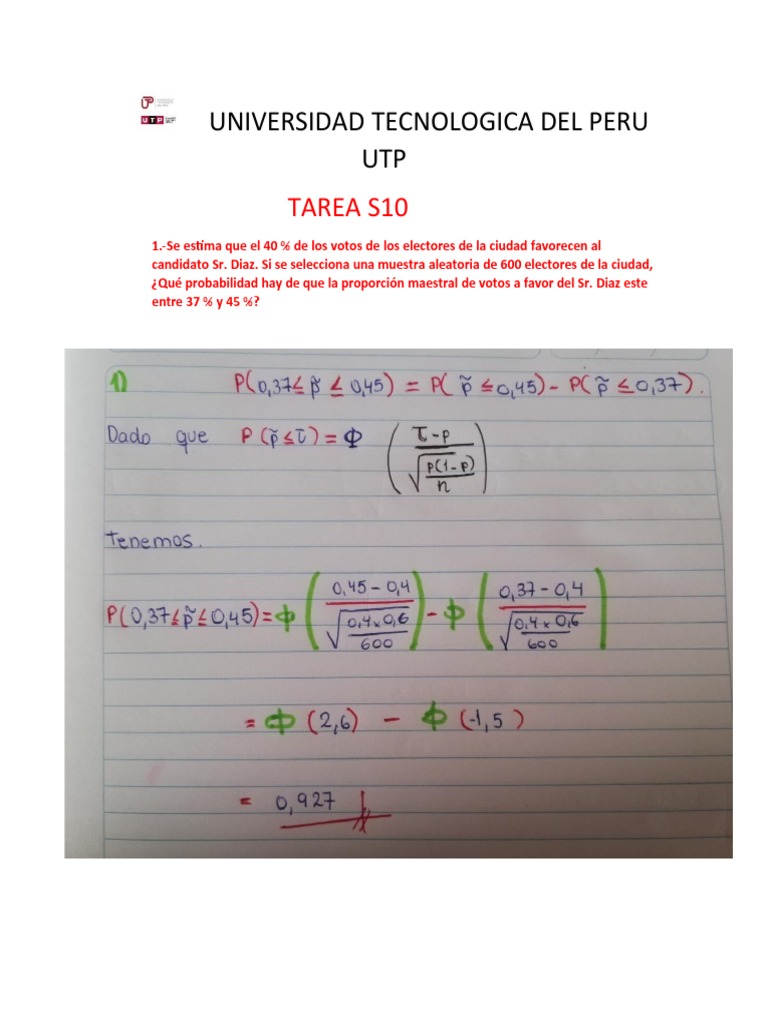 UTP
UNIVERSIDAD TECNOLOGICA DEL PERU
UTP
TAREA S10
1.-Se estima que el 40 % de los votos de los electores de la ciudad favorecen al
candidato Sr. Diaz. Si se selecciona una muestra aleatoria de 600 electores de la ciudad,
¿Qué probabilidad hay de que la proporción maestral de votos a favor del Sr. Diaz este
entre 37 % y 45 %?
1) P(0,37≤ p̃ ≤ 0,45) = P( p̃ ≤ 0,45) - P( p̃ ≤ 0,37).
Dado que P (p̃ ≤ τ) = Φ ( (τ - p) / √(p(1-p)/n) )
Tenemos.
P(0,37 ≤ p̃ ≤ 0,45) = Φ ( (0,45 - 0,4) / √(0,4 x 0,6/600) ) - Φ ( (0,37 - 0,4) / √(0,4 x 0,6/600) )
= Φ (2,6) - Φ (-1,5)
= 0,927